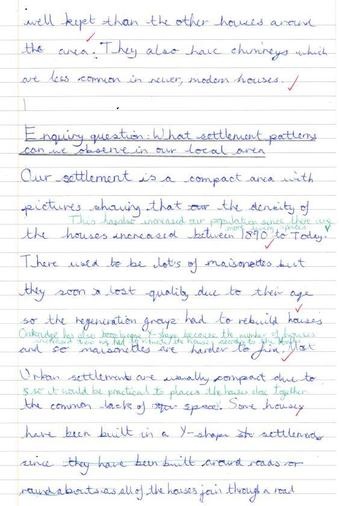 well kept than the other houses around
the area. They also have chimneys which
are less common in newer, modern houses.
Enquiry question: What settlement patterns
can we observe in our local area
Our settlement is a compact area with
pictures showing that our the density of
This has also increased our population since there are
more living spaces
the houses increased between 1890 to Today.
There used to be lots of maisonettes but
they soon lost quality due to their age
so the regeneration groups had to rebuild houses
has also been because the number of
increased
and so maisonettes are harder to find. Most
Urban settlements are usually compact due to
so it would be practical to place the houses close together
the common lack of space. Some houses
have been built in a Y-shape settlements
since they have been built around roads or
roundabouts as all of the houses join through a road